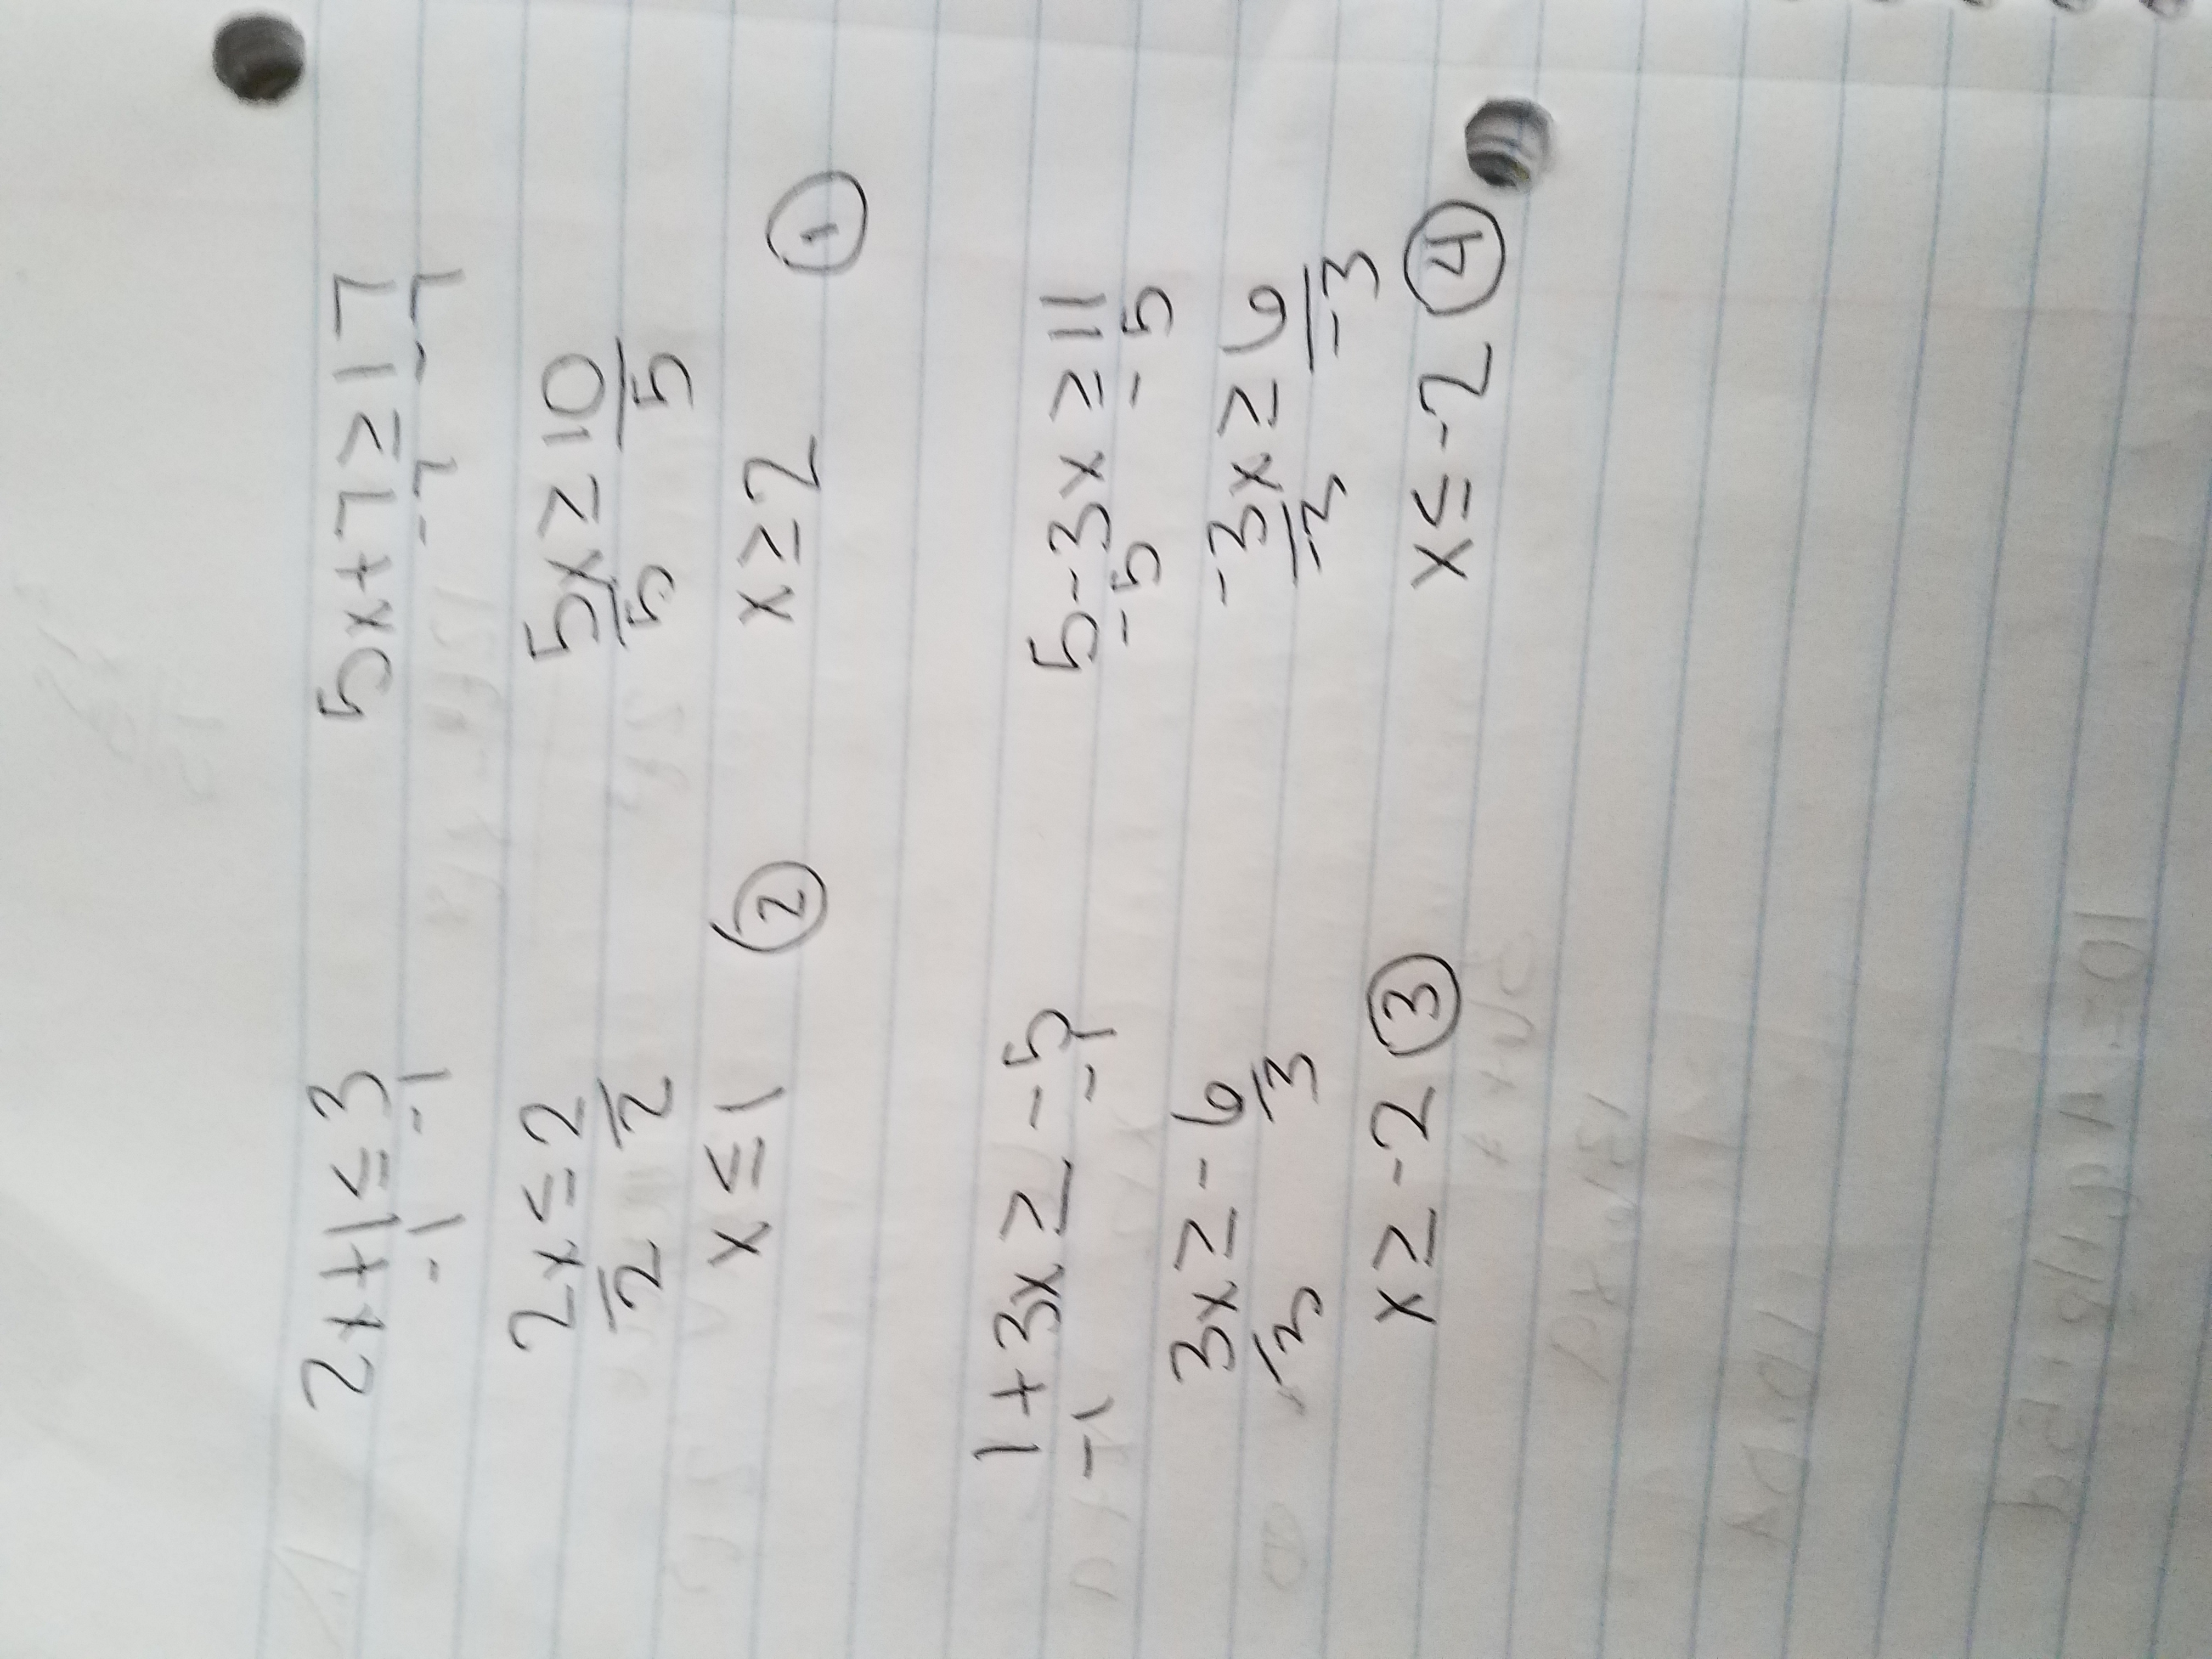 2x+1≤3
-1 -1
2x≤2
2 2
x≤1
2
5x+7≥17
-7 -7
5x≥10
5 5
x≥2
1
1+3x≥-5
-1 -1
3x≥-6
3 3
x≥-2
3
5-3x≥11
-5 -5
-3x≥6
-3 -3
x≤-2
4